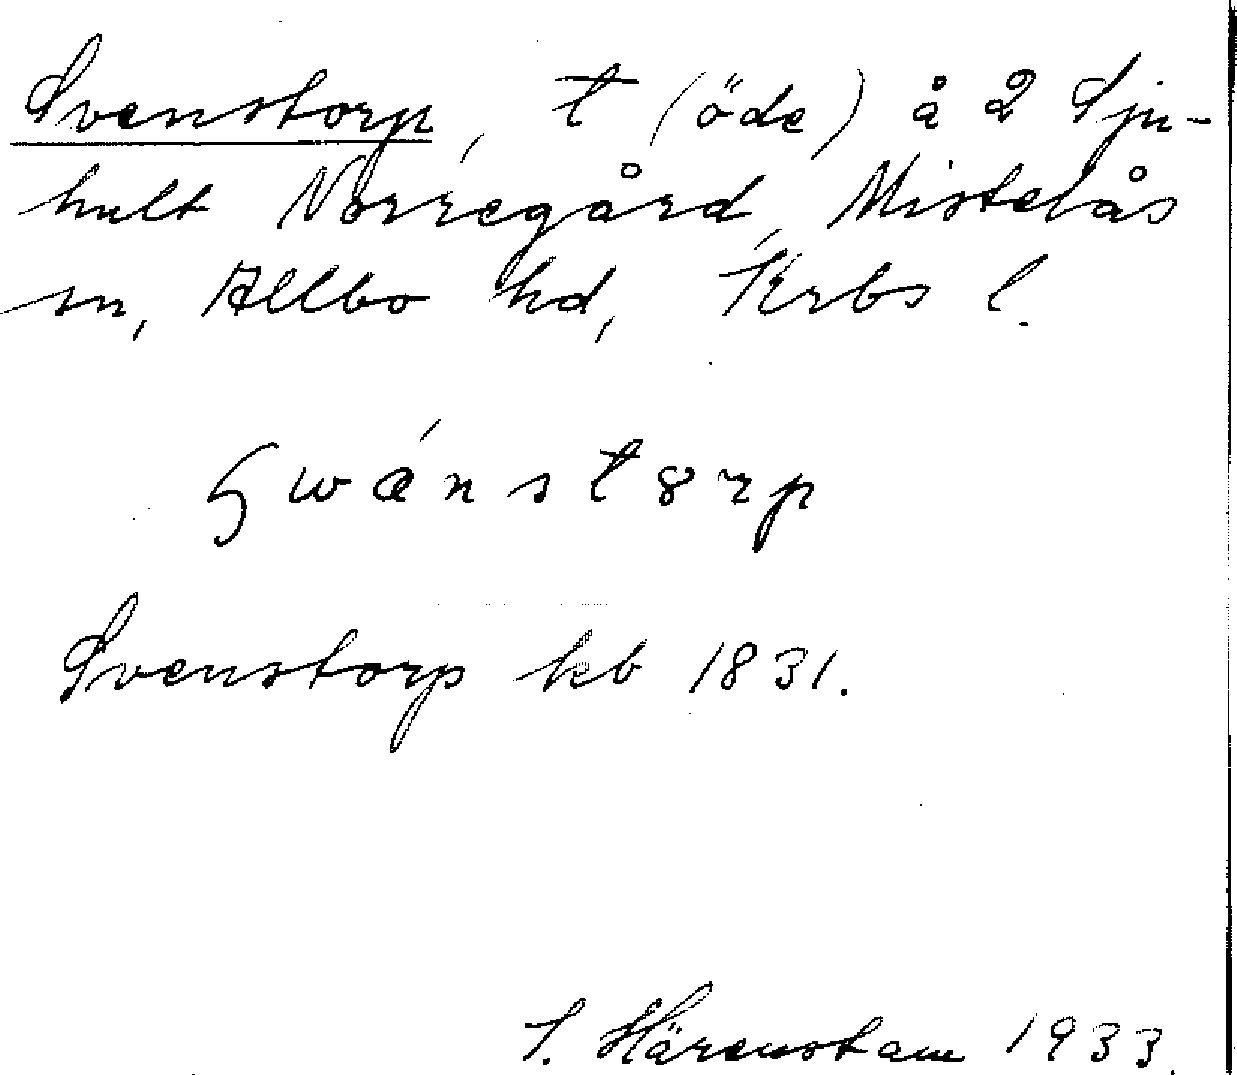 Svenstorp, t (öde) å 2 Sju-
hult Norregård, Mistelås
sn, Allbo hd, Krbs l.
Svenstorp kb 1831.
S. Härenstam 1933.